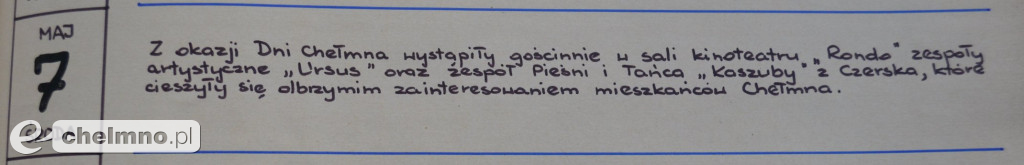 MAJ
7
Z okazji Dni Chełmna wystąpiły gościnnie w sali kinoteatru „Rondo" zespoły
artystyczne „Ursus" oraz zespół Pieśni i Tańca „Kaszuby" z Czerska, które
cieszyły się olbrzymim zainteresowaniem mieszkańców Chełmna.
e-chelmno.pl